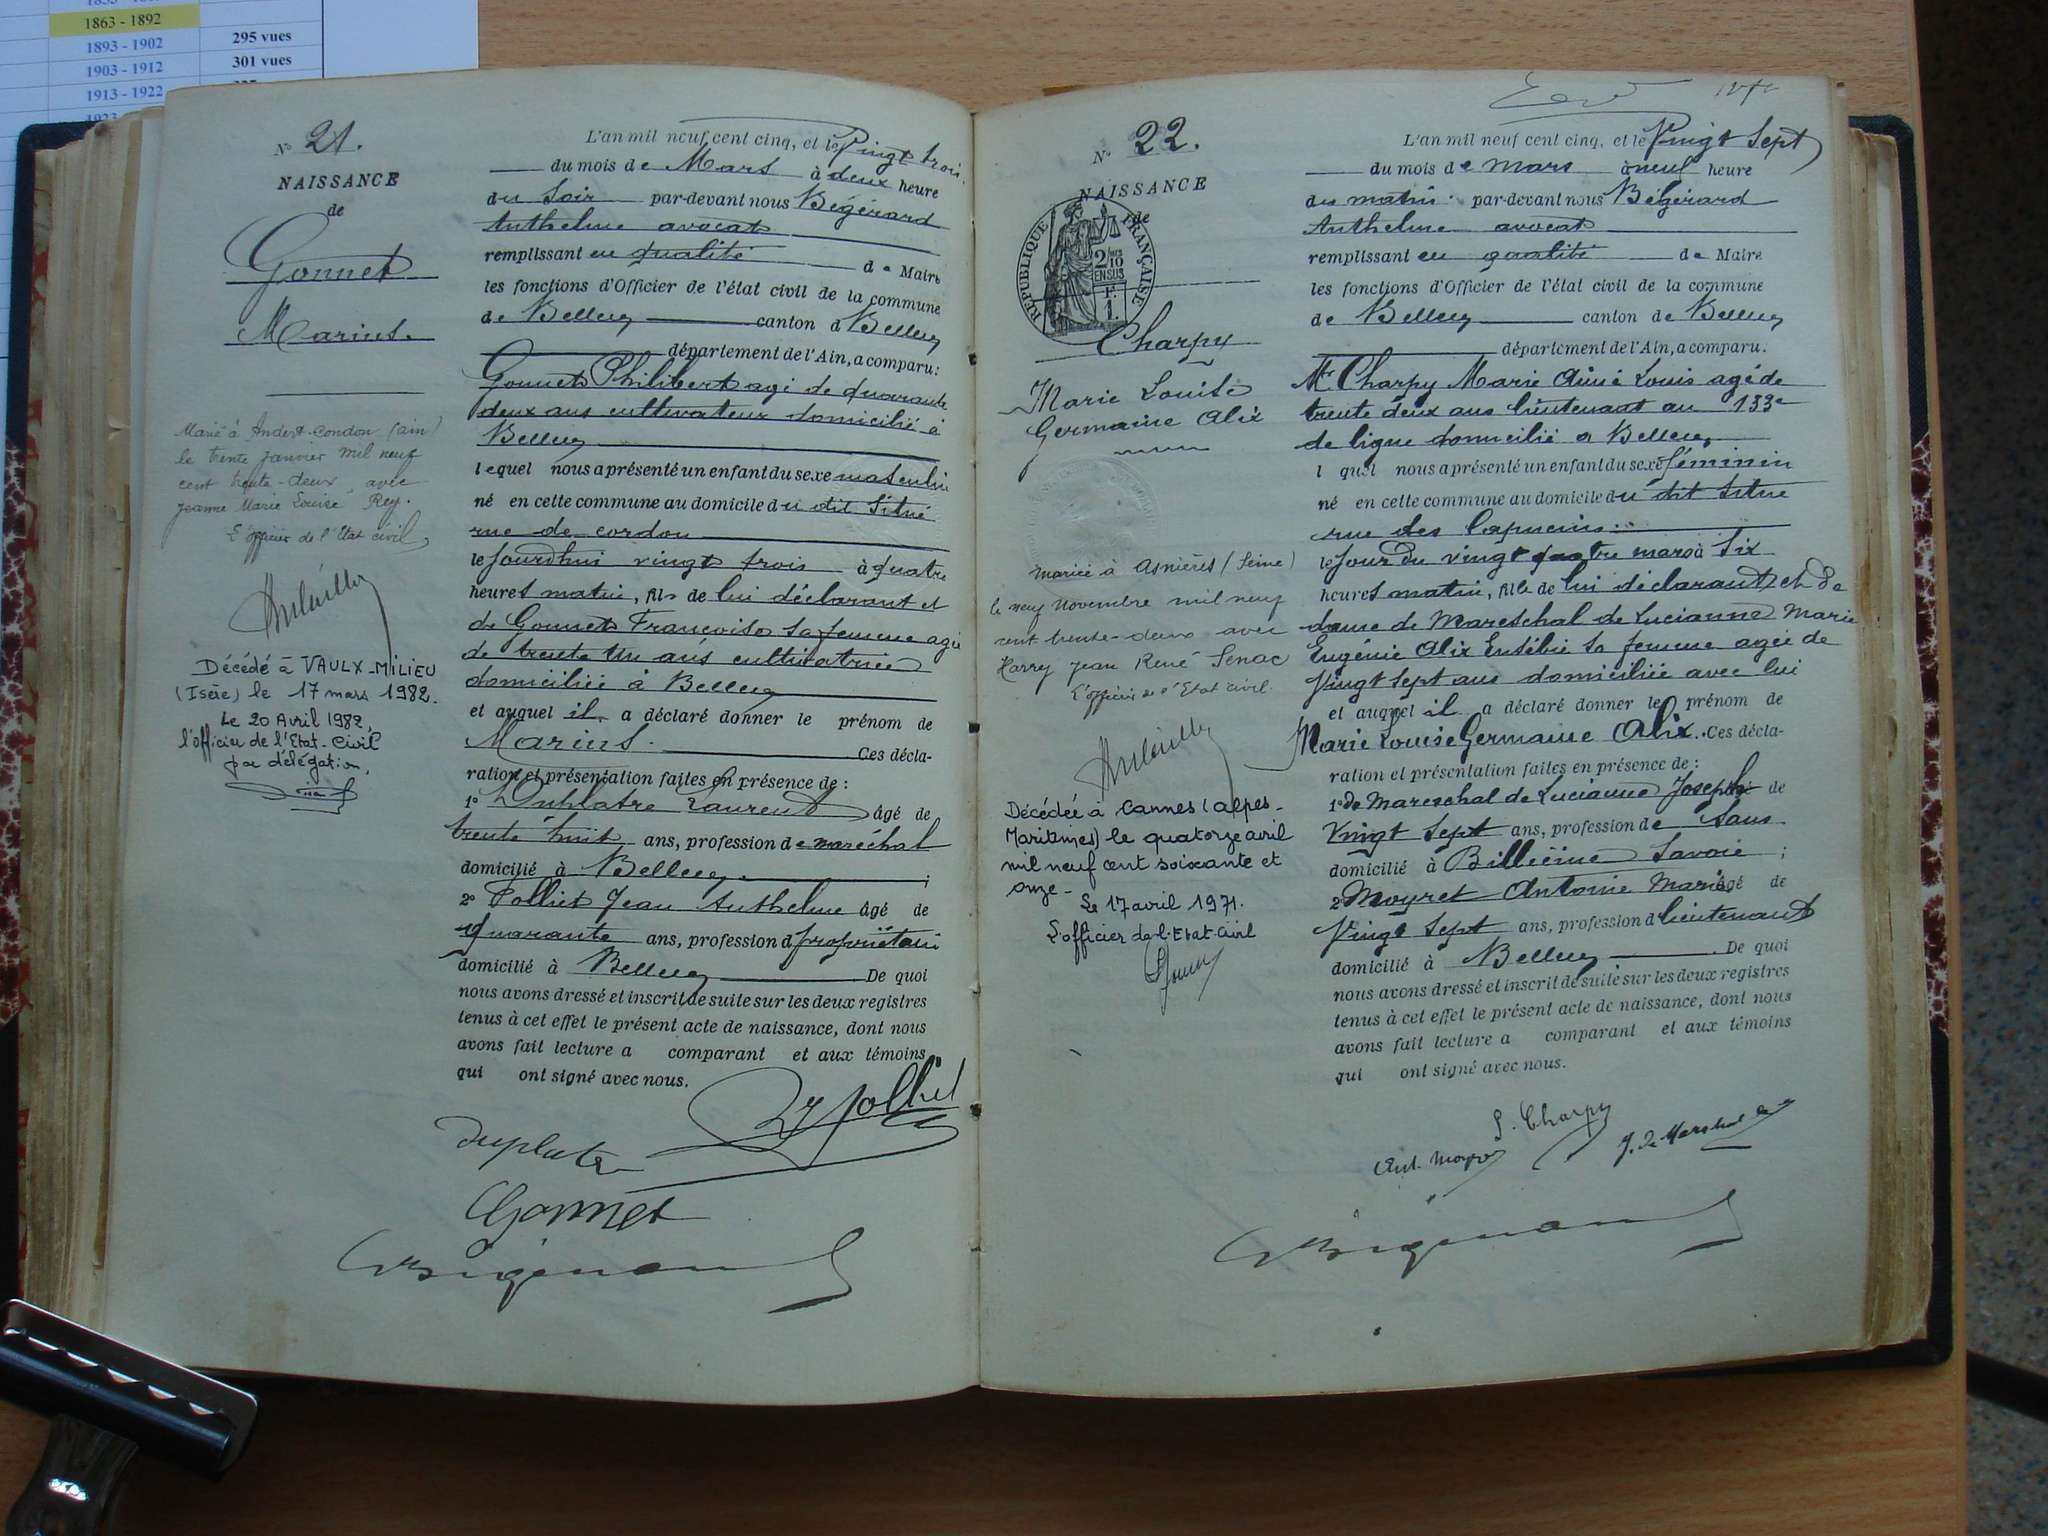 1863 - 1892
1893 - 1902 295 vues
1903 - 1912 301 vues
1913 - 1922
N° 21.
NAISSANCE
de
Gonnet
Marius.
Marié à Andert-Condon (ain)
le trente janvier mil neuf
cent trente-deux avec
Jeanne Marie Louise Rey.
L'officier de l'Etat civil
Décédé à VAULX-MILIEU
(Isère) le 17 mars 1982.
Le 20 Avril 1982,
l'officier de l'Etat-Civil
par délégation,
L'an mil neuf cent cinq, et le Vingt trois
du mois de Mars à deux heure
du Soir par-devant nous Bégérard
Anthelme avocat
remplissant en qualité de Maire
les fonctions d'Officier de l'état civil de la commune
de Belley canton d Belley
département de l'Ain, a comparu:
Gonnet Philibert agé de quarante
deux ans cultivateur domicilié à
Belley
lequel nous a présenté un enfant du sexe masculin
né en cette commune au domicile du dit Situé
rue de cordon
le Jourdhui vingt trois à quatre
heures matin, fils de lui déclarant et
de Gonnet Françoise sa femme agée
de trente un ans cultivatrice
domiciliée à Belley
et auquel il a déclaré donner le prénom de
Marius. Ces décla-
ration et présentation faites en présence de :
1° Duplatre Laurent âgé de
trente huit ans, profession de maréchal
domicilié à Belley ;
2° Folliet Jean Anthelme âgé de
quarante ans, profession d propriétaire
domicilié à Belley De quoi
nous avons dressé et inscrit de suite sur les deux registres
tenus à cet effet le présent acte de naissance, dont nous
avons fait lecture a comparant et aux témoins
qui ont signé avec nous.
Folliet
Duplatre
Gonnet
Bégérard
N° 22.
NAISSANCE
de
RÉPUBLIQUE FRANÇAISE
2/10
EN SUS
F.
1.
Charpy
Marie Louise
Germaine Alix
Mariée à Asnières (Seine)
le neuf Novembre mil neuf
cent trente-deux avec
Harry Jean René Senac
L'officier de l'Etat civil.
Décédée à Cannes (Alpes-
Maritimes) le quatorze avril
mil neuf cent soixante et
onze -
Le 17 avril 1971.
L'officier de l'Etat-Civil
L'an mil neuf cent cinq, et le Vingt Sept
du mois de mars à neuf heure
du matin par-devant nous Bégérard
Anthelme avocat
remplissant en qualité de Maire
les fonctions d'Officier de l'état civil de la commune
de Belley canton de Belley
département de l'Ain, a comparu.
Mr Charpy Marie Aimé Louis agé de
trente deux ans lieutenant au 133e
de ligne domicilié a Belley
l quel nous a présenté un enfant du sexe féminin
né en cette commune au domicile du dit Situé
rue des Capucins
le Jour du vingt quatre mars à Six
heures matin, fille de lui déclarant et de
dame de Mareschal de Lucianne Marie
Eugénie Alix Eusébie sa femme agée de
Vingt Sept ans domiciliée avec lui
et auquel il a déclaré donner le prénom de
Marie Louise Germaine Alix. Ces décla-
ration et présentation faites en présence de :
1° de Mareschal de Lucianne Joseph de
Vingt Sept ans, profession de Sans
domicilié à Billième Savoie ;
2° Moyret Antoine Marie âgé de
Vingt Sept ans, profession d lieutenant
domicilié à Belley De quoi
nous avons dressé et inscrit de suite sur les deux registres
tenus à cet effet le présent acte de naissance, dont nous
avons fait lecture a comparant et aux témoins
qui ont signé avec nous.
L. Charpy
Ant. Moyret J. de Marshal
Bégérard